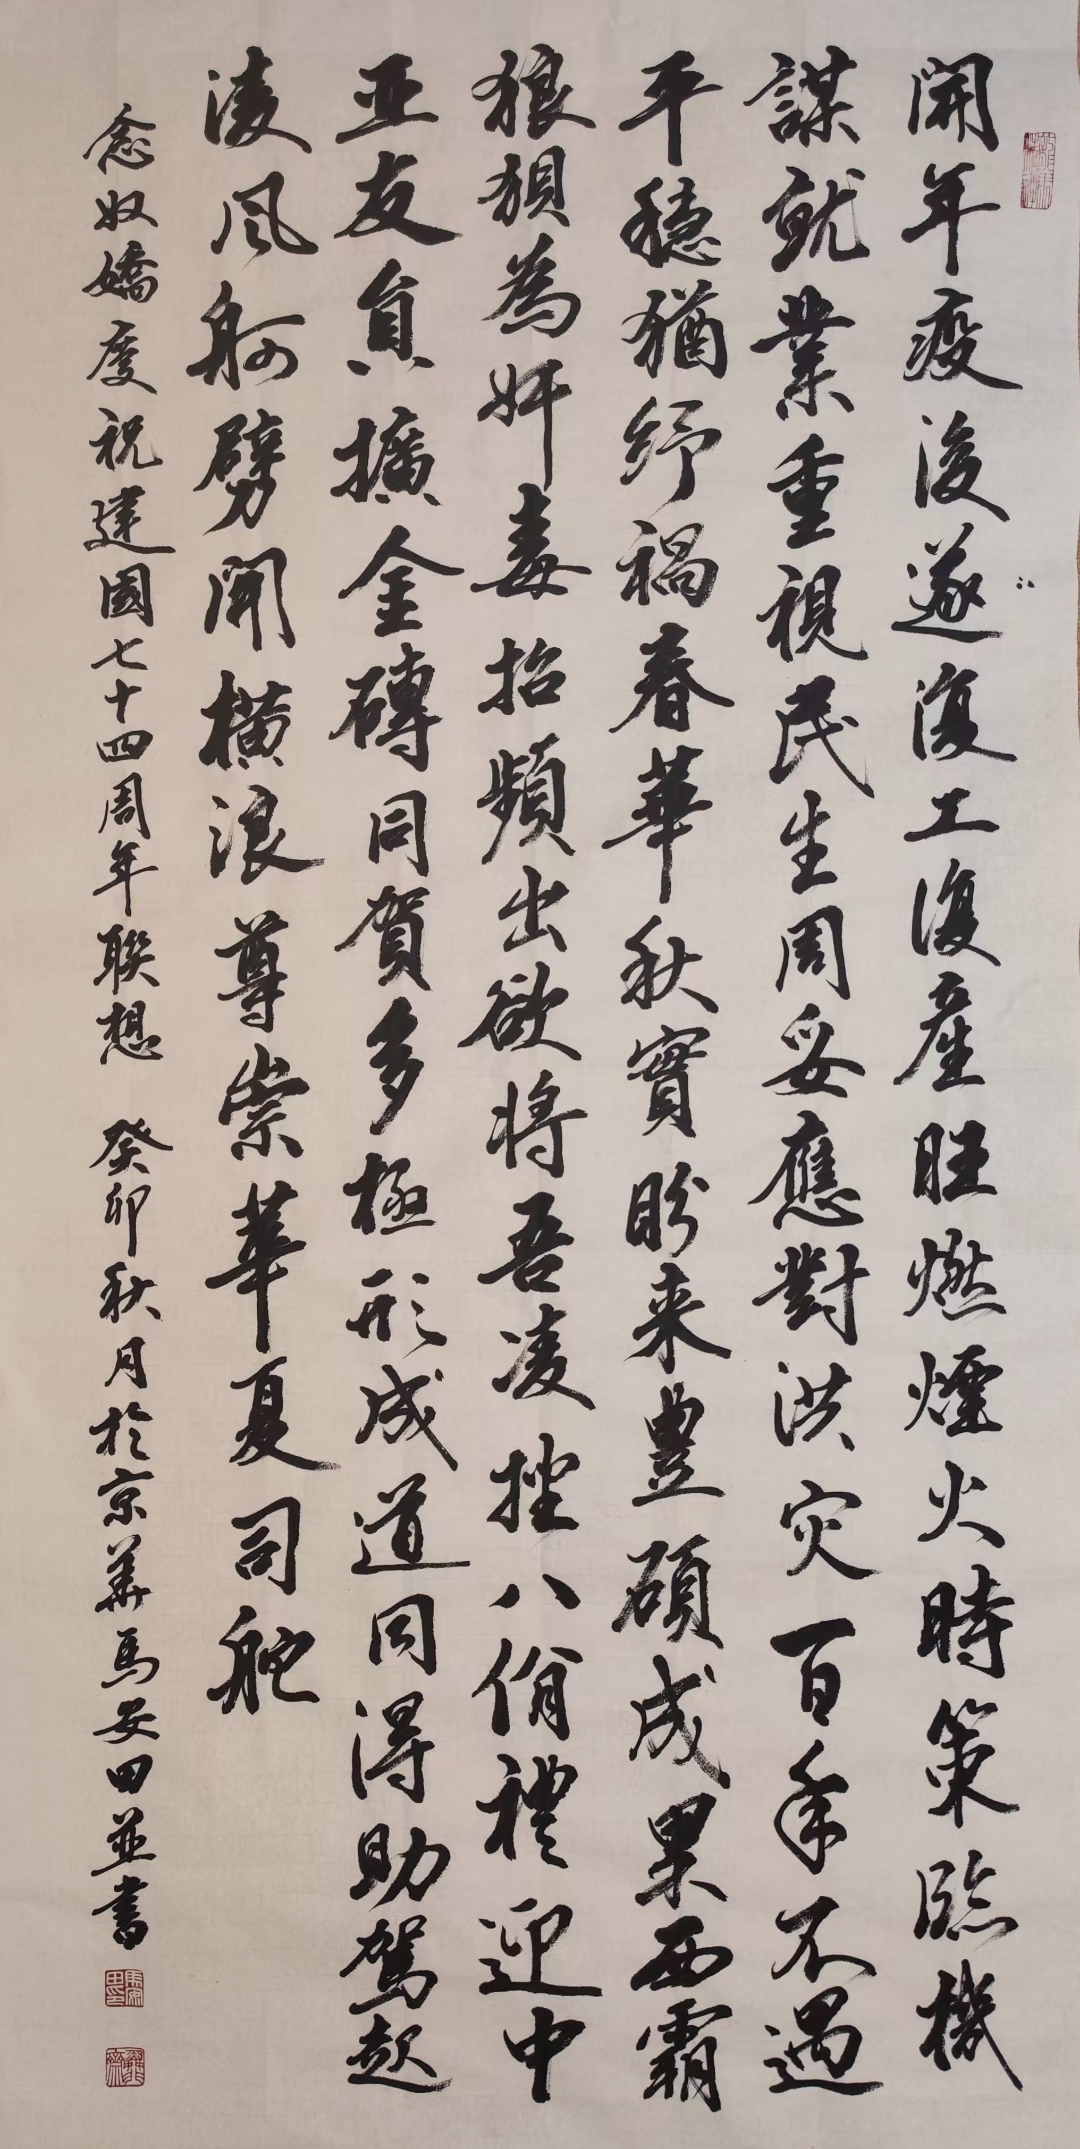 開年疫後遂復工復産旺燃煙火時策臨機
謀就業重視民生周妥應對洪灾百年不遇
平穩猶紓禍春華秋實盼来豊碩成果西霸
狼狽為奸毒招頻出欲將吾凌挫八佾禮迎中
亚友員擴金磚同賀多極形成道同得助駕起
凌风舸劈開横浪尊崇華夏司舵
念奴嬌慶祝建國七十四周年聯想 癸卯秋月於京華馬安田並書